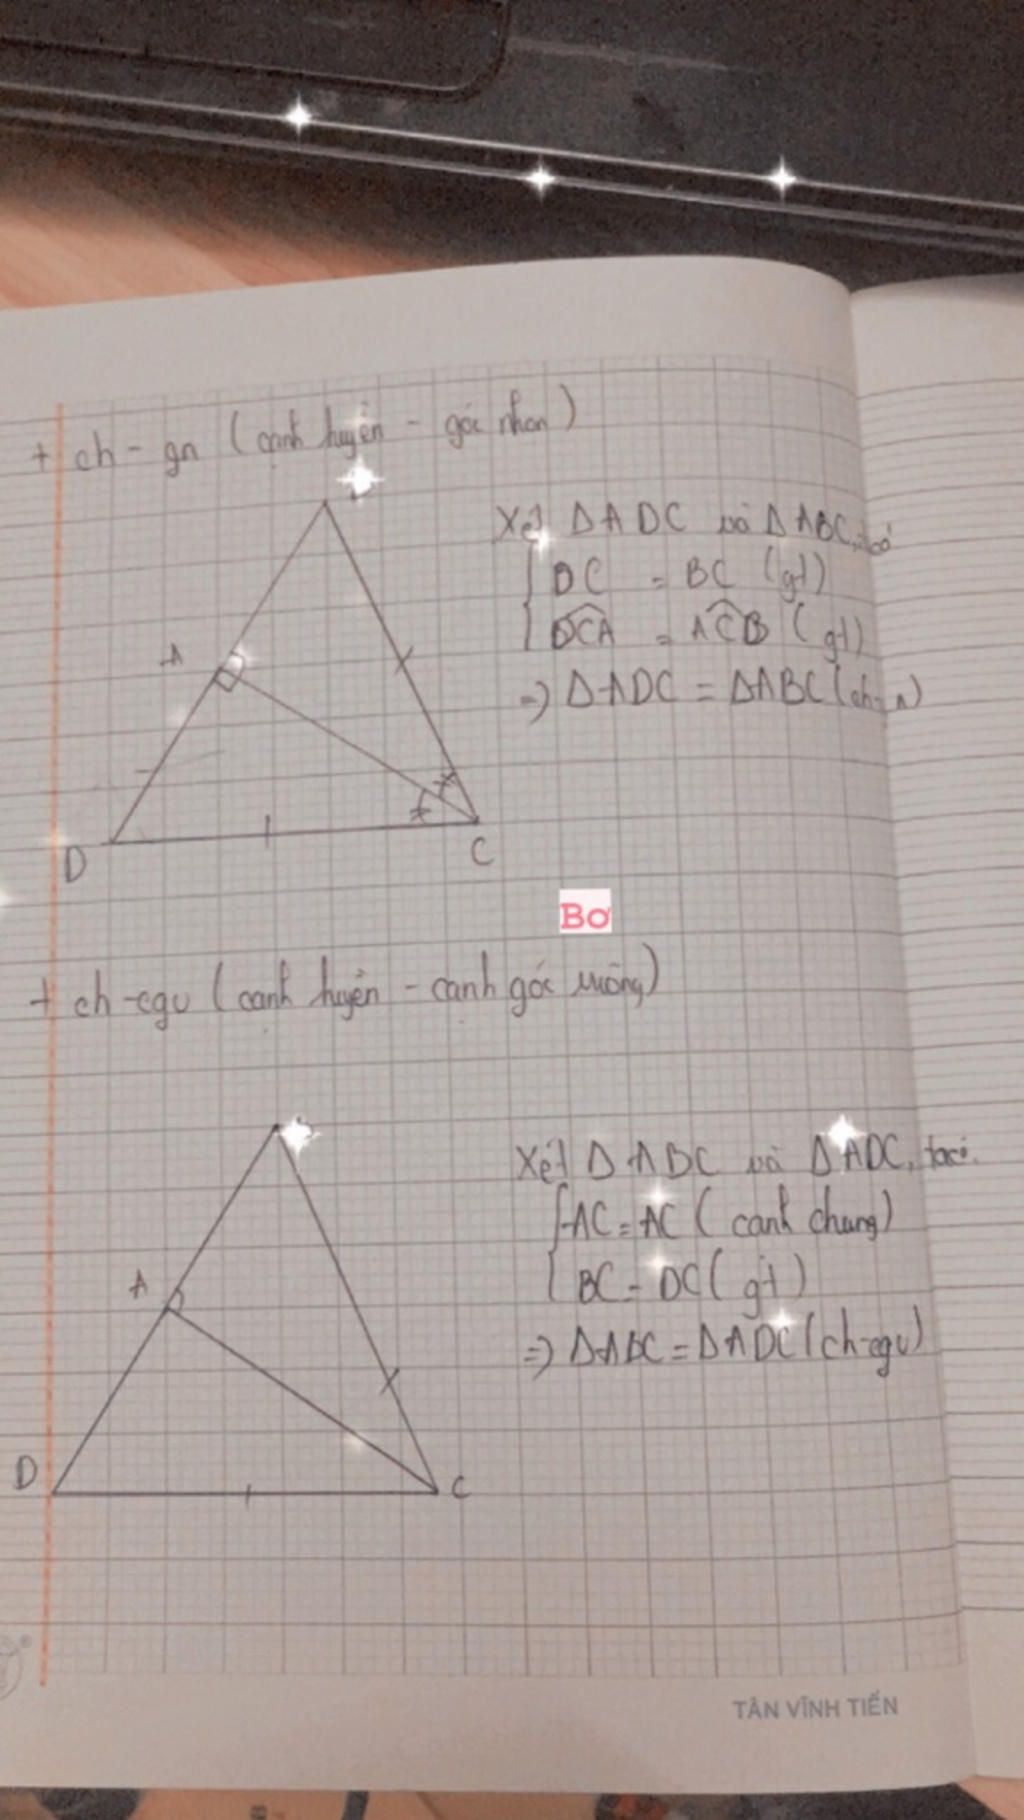 + ch - gn (cạnh huyền - góc nhọn)
A
D
C
Xét ΔADC và ΔABC, có
DC = BC (gt)
DCA = ACB (gt)
=> ΔADC = ΔABC (ch-
Bơ
+ ch-cgv (cạnh huyền - cạnh góc vuông)
A
D
C
Xét ΔABC và ΔADC, ta có:
AC = AC (cạnh chung)
BC = DC (gt)
=> ΔABC = ΔADC (ch-cgv)
TÂN VĨNH TIẾN